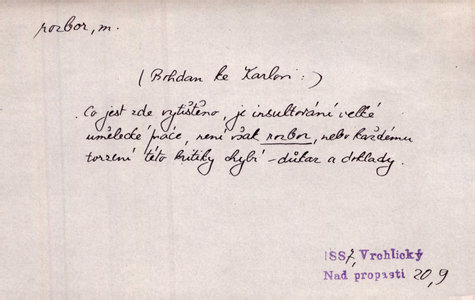 rozbor, m.
(Bohdan ke Karlovi:)
Co jest zde vytištěno, je insultování velké
umělecké práce, není však rozbor, nebo každému
tvrzení této kritiky chybí - důkaz a doklady.
ISS7, Vrchlický
Nad propastí 20,9